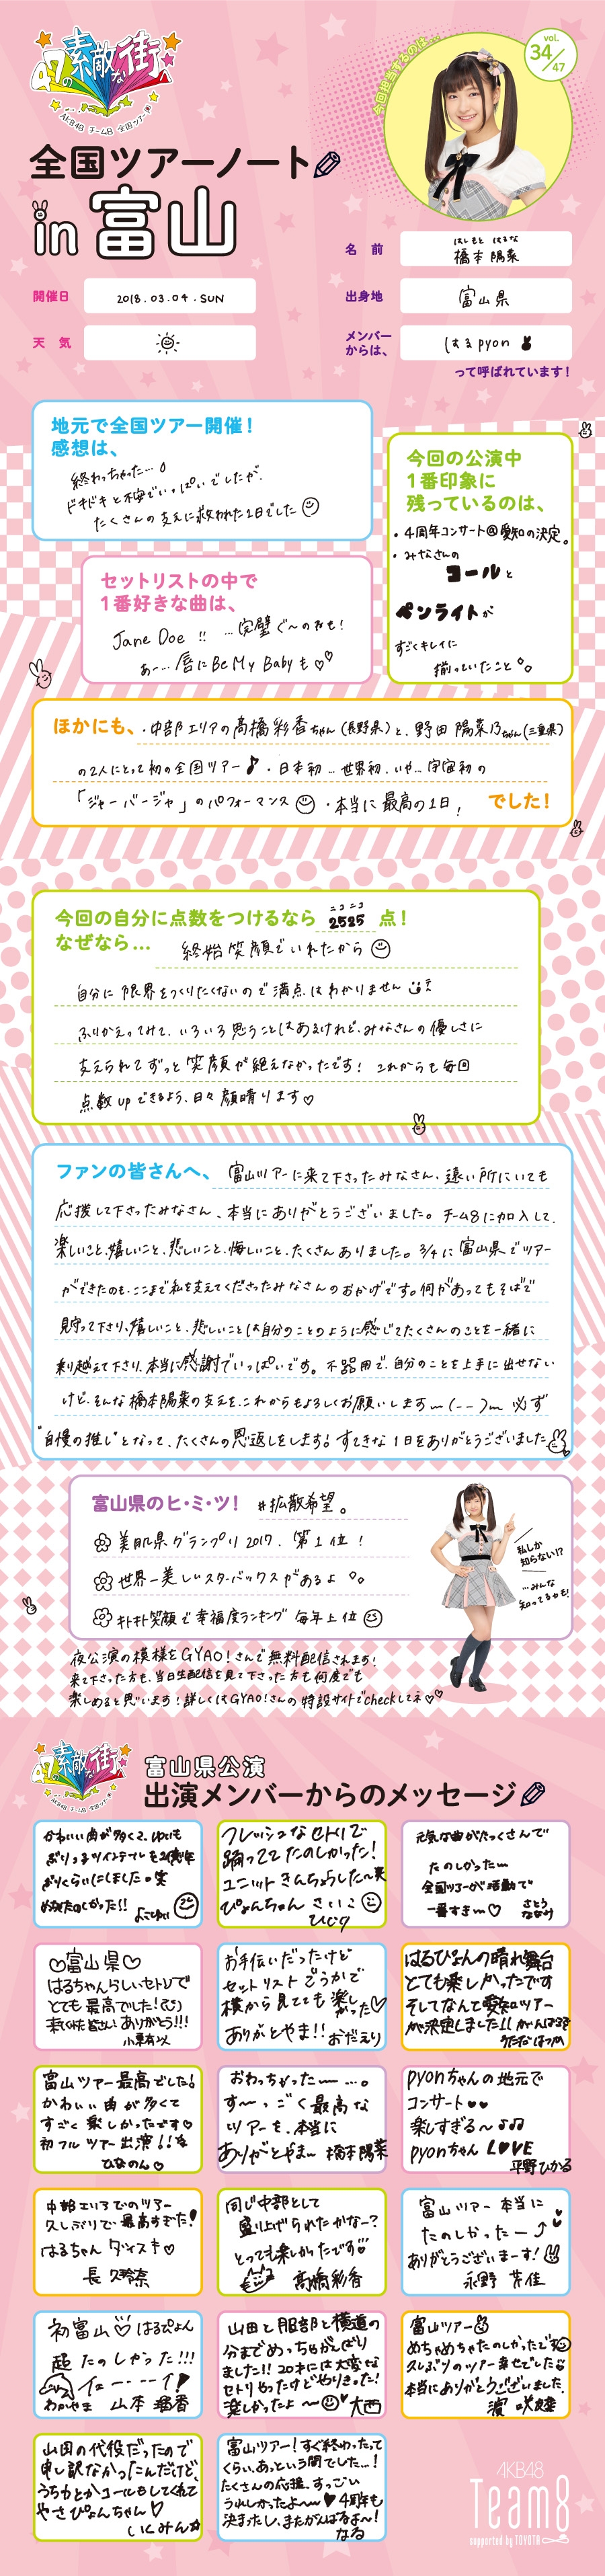 47の素敵な街へ
AKB48 チーム8 全国ツアー
全国ツアーノート
in 富山
今回担当するのは…
vol.
34/47
名 前
はしもと はるな
橋本 陽菜
開催日
2018.03.04.SUN
出身地
富山県
天 気
メンバー
からは、
はるpyon
って呼ばれています!
地元で全国ツアー開催!
感想は、
終わっちゃった…
ドキドキと不安でいっぱいでしたが、
たくさんの支えに救われた1日でした
今回の公演中
1番印象に
残っているのは、
・4周年コンサート@愛知の決定。
・みなさんの
コールと
ペンライトが
すごくキレイに
揃っていたこと
セットリストの中で
1番好きな曲は、
Jane Doe !! …完璧ぐ〜のねも!
あー…唇に Be My Babyも♡♡
ほかにも、・中部エリアの髙橋彩香ちゃん(長野県)と、野田陽菜乃ちゃん(三重県)
の2人にとって初の全国ツアー♪ ・日本初…世界初、いや…宇宙初の
「ジャーバージャ」のパフォーマンス ・本当に最高の1日! でした!
今回の自分に点数をつけるなら 2525 点!
ニコニコ
なぜなら… 終始笑顔でいれたから
自分に限界をつくりたくないので満点はわかりません
ふりかえってみて、いろいろ思うことはあるけれど、みなさんの優しさに
支えられてずっと笑顔が絶えなかったです! これからも毎回
点数upできるよう、日々顔晴ります♡
ファンの皆さんへ、 富山ツアーに来て下さったみなさん、遠い所にいても
応援して下さったみなさん、本当にありがとうございました。チーム8に加入して、
楽しいこと、嬉しいこと、悲しいこと、悔しいこと、たくさんありました。3/4に富山県でツアー
ができたのも、ここまで私を支えてくださったみなさんのおかげです。何があってもそばで
見守って下さり、嬉しいこと、悲しいことは自分のことのように感じてたくさんのことを一緒に
乗り越えて下さり、本当に感謝でいっぱいです。不器用で、自分のことを上手に出せない
けど、そんな橋本陽菜の支えを、これからもよろしくお願いしますm(--)m 必ず
"自慢の推し"となって、たくさんの恩返しをします! すてきな1日をありがとうございました
富山県のヒ・ミ・ツ! #拡散希望。
美肌県グランプリ2017、第1位!
世界一美しいスターバックスがあるよ
キトキト笑顔で幸福度ランキング毎年上位
私しか
知らない!?
…みんな
知ってるかも!
夜公演の模様をGYAO!さんで無料配信されます!
来て下さった方も、当日生配信を見て下さった方も何度でも
楽しめると思います!詳しくはGYAO!さんの特設サイトでcheckしてネ♡♡
47の素敵な街へ
AKB48 チーム8 全国ツアー
富山県公演
出演メンバーからのメッセージ
かわいい曲が多くて、ゆいも
めちゃたのしかった!!
フレッシュなセトリで
踊っててたのしかった!
ユニットきんちょうした〜笑
ぴょんちゃん さいこ
元気な曲がたっくさんで
たのしかったー
全国ツアーが活動で
一番すきー♡ さとう
ななみ
♡富山県♡
はるちゃんらしいセトリで
とても最高でした!
来てくれた皆さん ありがとう!!!
小栗有以
お手伝いだったけど
セットリストどうかで
横から見てても楽し
かった♡
ありがとやま!! おだえり
はるぴょんの晴れ舞台
とても楽しかったです
そしてなんと愛知ツアー
が決定しました!! がんばるぞ
うたなはつか
富山ツアー最高でした!
かわいい曲が多くて
すごく楽しかったです♡
初フルツアー出演!!
ひなのん♡
おわっちゃったー…。
すーっごく最高な
ツアーを、本当に
ありがとやまー 橋本陽菜
pyonちゃんの地元で
コンサート♥♥
楽しすぎる〜♪♪
pyonちゃん L♥VE
平野ひかる
中部エリアでのツアー
久しぶりで最高すぎた!
はるちゃん ダイスキ♡
長 久玲奈
同じ中部として
盛り上げられたかなー?
とっても楽しかったです
髙橋彩香
富山ツアー 本当に
たのしかったー⤴
ありがとうございまーす!
永野 芹佳
初富山♡はるぴょん
超 たのしかった!!!
イェーーーイ!
わかやま 山本 瑠香
山田と服部と横道の
分までめっちゃがんばり
ました!! 20才には大変な
セトリやったけどやりきった!
楽しかったよ〜♡ 大西
富山ツアー
めちゃめちゃたのしかったです
久しぶりのツアー幸せでした
本当にありがとうございました。
濵 咲友菜
山田の代役だったので
申し訳なかったんだけど、
うちわとかコールもしてくれて
やさぴょんちゃん♡
いくみん☆
富山ツアー!すぐ終わったって
くらい、あっという間でした…!
たくさんの応援、すっごい
うれしかったよ〜♥4周年も
決まったし、またがんばるよ〜!
なる
AKB48
Team8
supported by TOYOTA